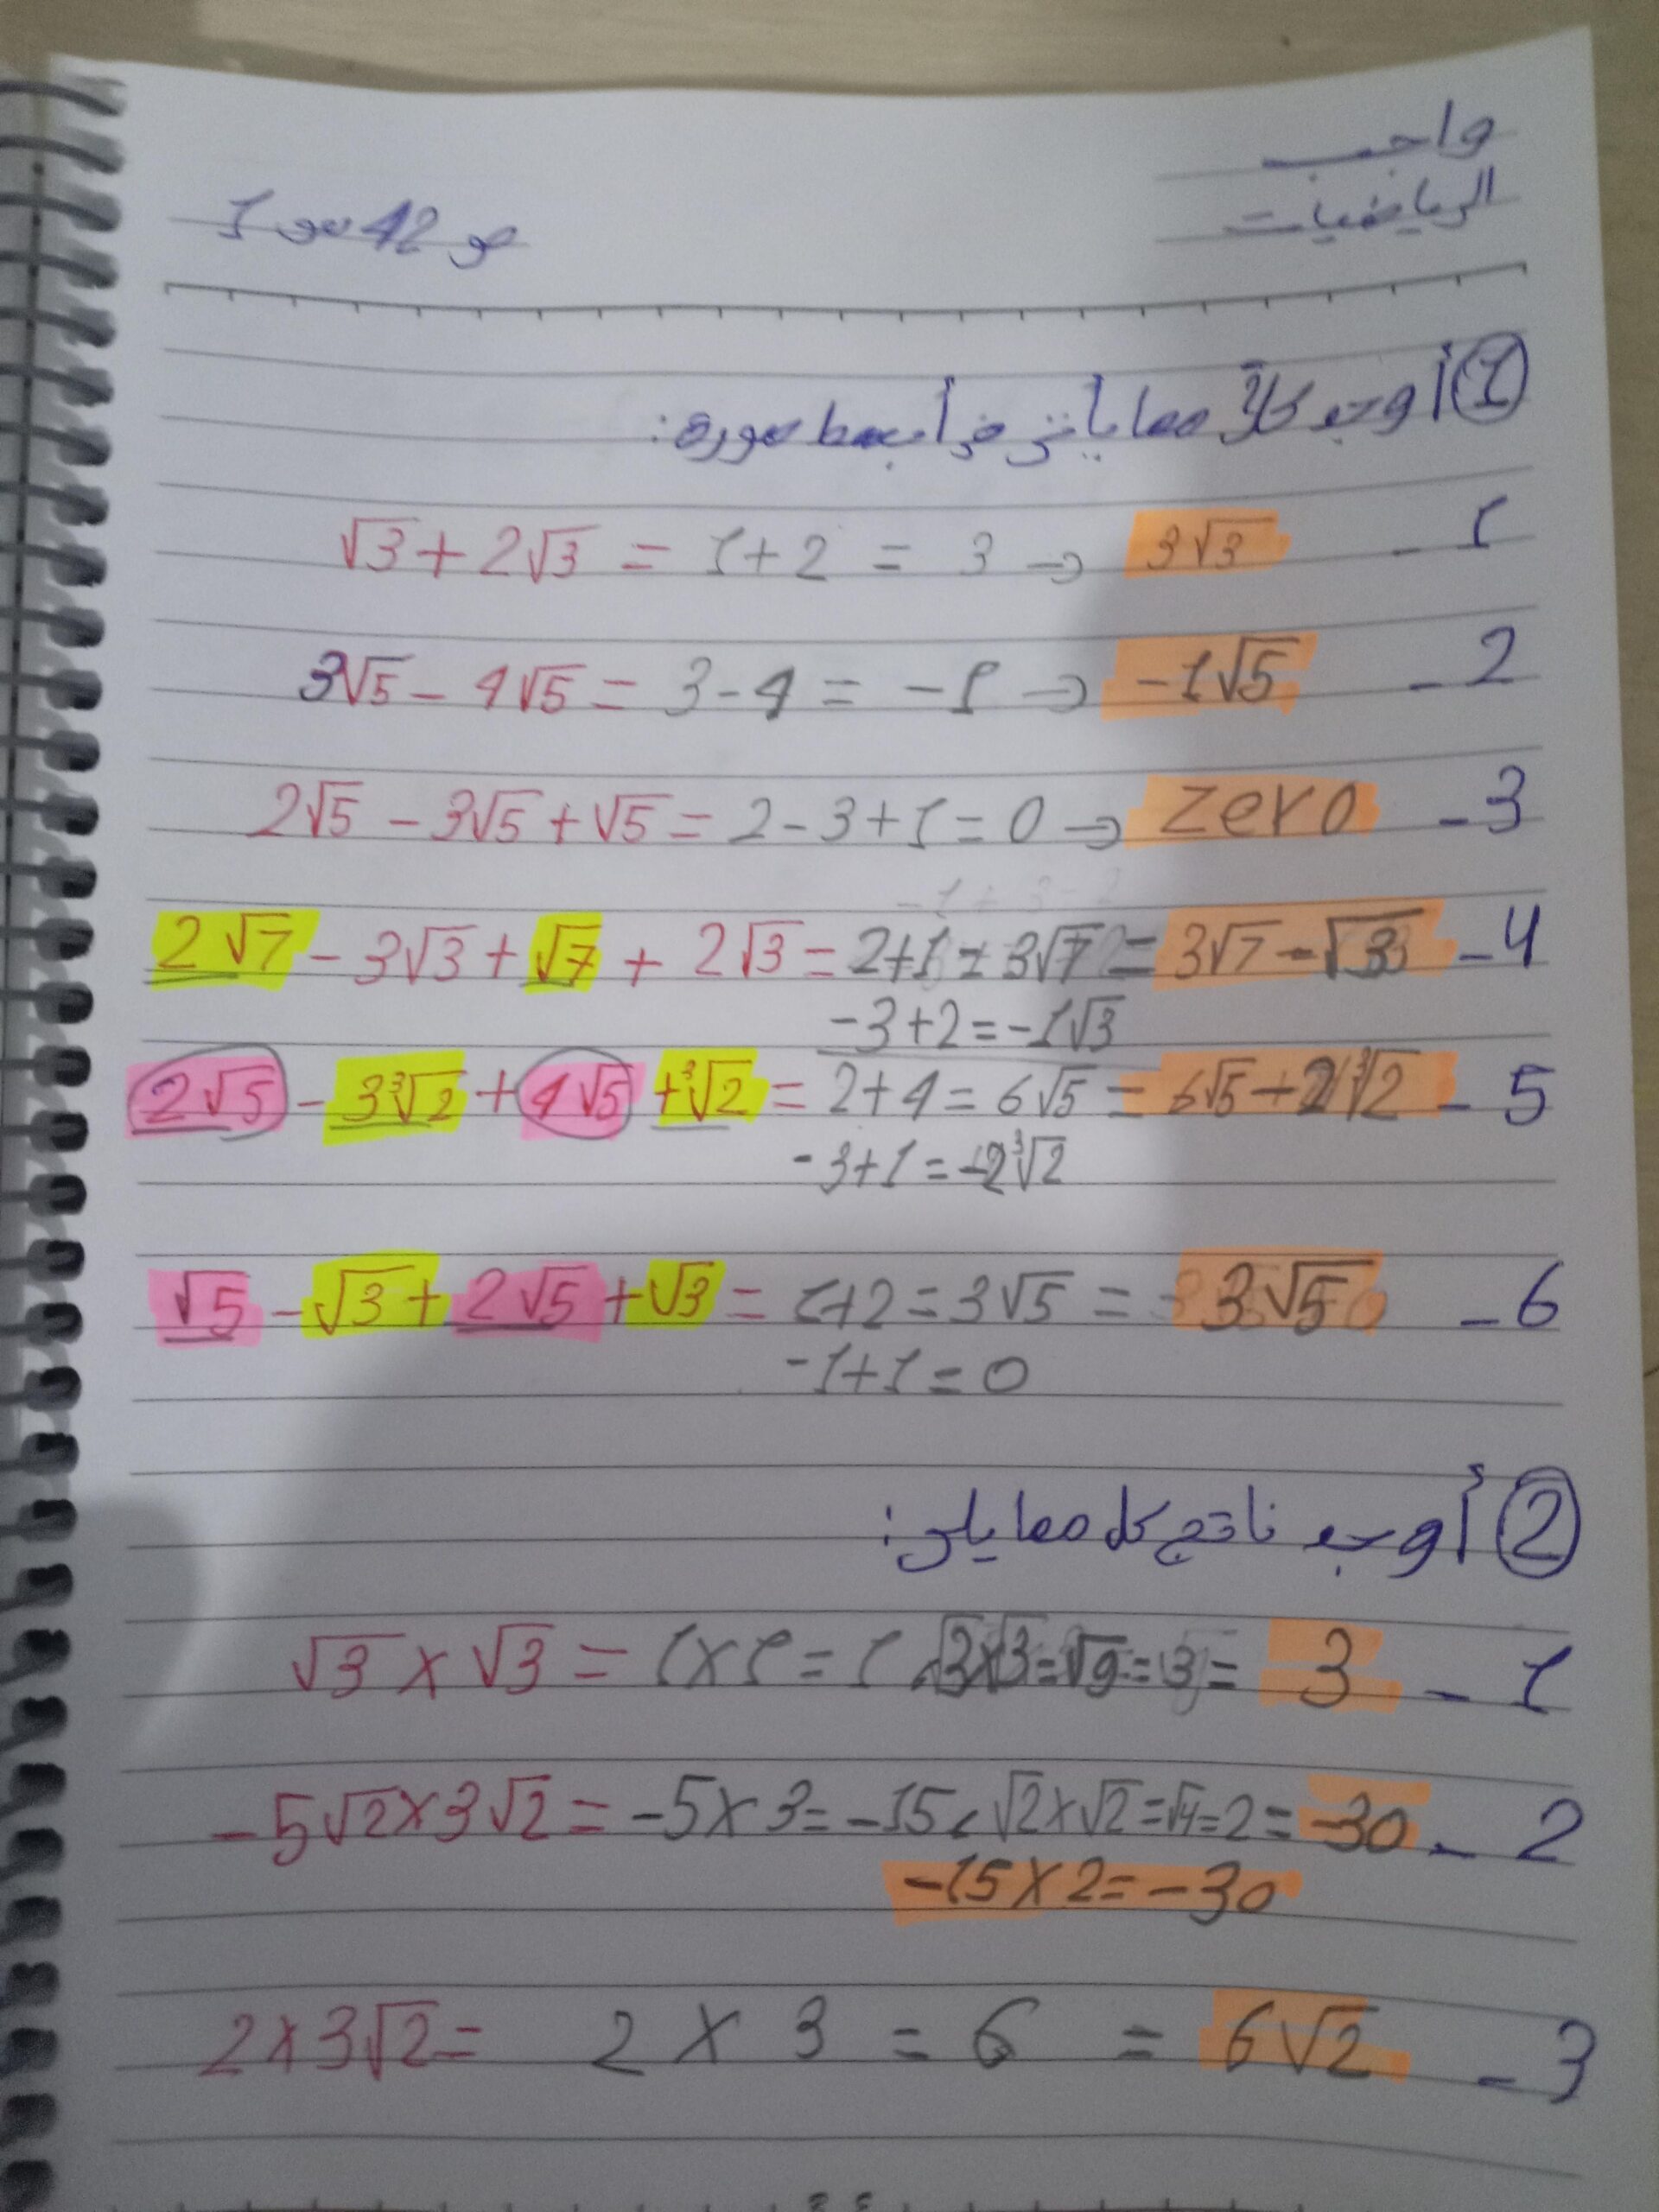 واجب
الرياضيات
ص 42 س 1
① أوجد كلاً مما يأتي في أبسط صورة:
√3 + 2√3 = 1+2 = 3 → 3√3 - 1
3√5 - 4√5 = 3-4 = -1 → -1√5 - 2
2√5 - 3√5 + √5 = 2-3+1 = 0 → zero - 3
2√7 - 3√3 + √7 + 2√3 = 2+1 = 3√7 = 3√7 - √3 - 4
-3+2 = -1√3
2√5 - 3∛2 + 4√5 + ∛2 = 2+4 = 6√5 = 6√5 + 2∛2 - 5
-3+1 = -2∛2
√5 - √3 + 2√5 + √3 = 1+2 = 3√5 = 3√5 - 6
-1+1 = 0
② أوجد ناتج كل مما يلي:
√3 × √3 = 1×1 = 1 ، √3×3 = √9 = 3 = 3 - 1
-5√2 × 3√2 = -5×3 = -15 ، √2×√2 = √4 = 2 = -30 - 2
-15×2 = -30
2×3√2 = 2 × 3 = 6 = 6√2 - 3